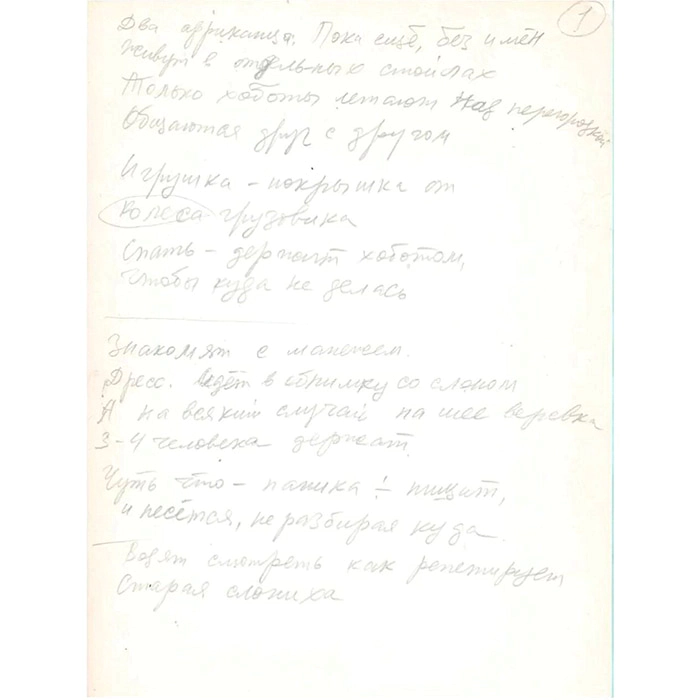 1
Два африканца. Пока ещё, без имён
Живут в отдельных стойлах
Только хоботы летают над перегородкой
Общаются друг с другом
Игрушка – покрышка от
колеса грузовика
Спать – держат хоботом,
чтобы куда не делась
Знакомят с манежем.
Дресс. ведёт в обнимку со слоном
А на всякий случай на шее веревка
3–4 человека держат.
Чуть что – паника! – пищит,
и несётся, не разбирая куда.
Водят смотреть как репетирует
Старая слониха